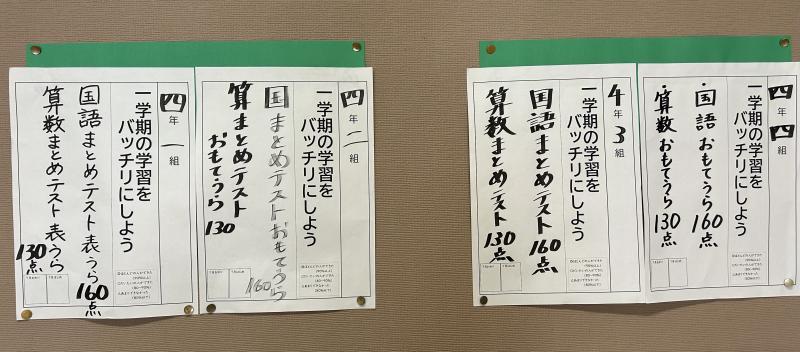 四年一組
一学期の学習を
バッチリにしよう
国語まとめテスト表うら160点
算数まとめテスト表うら130点
四年二組
一学期の学習を
バッチリにしよう
国まとめテストおもてうら160
算まとめテスト
おもてうら130
4年3組
一学期の学習を
バッチリにしよう
国語まとめテスト160点
算数まとめテスト130点
四年四組
一学期の学習を
バッチリにしよう
・国語おもてうら160点
・算数おもてうら130点